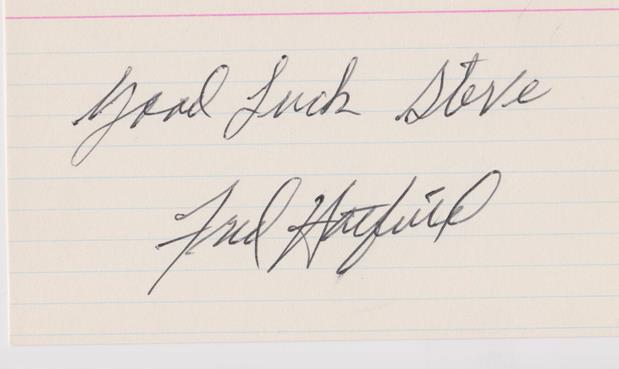 Good Luck Steve
Fred Hatfield